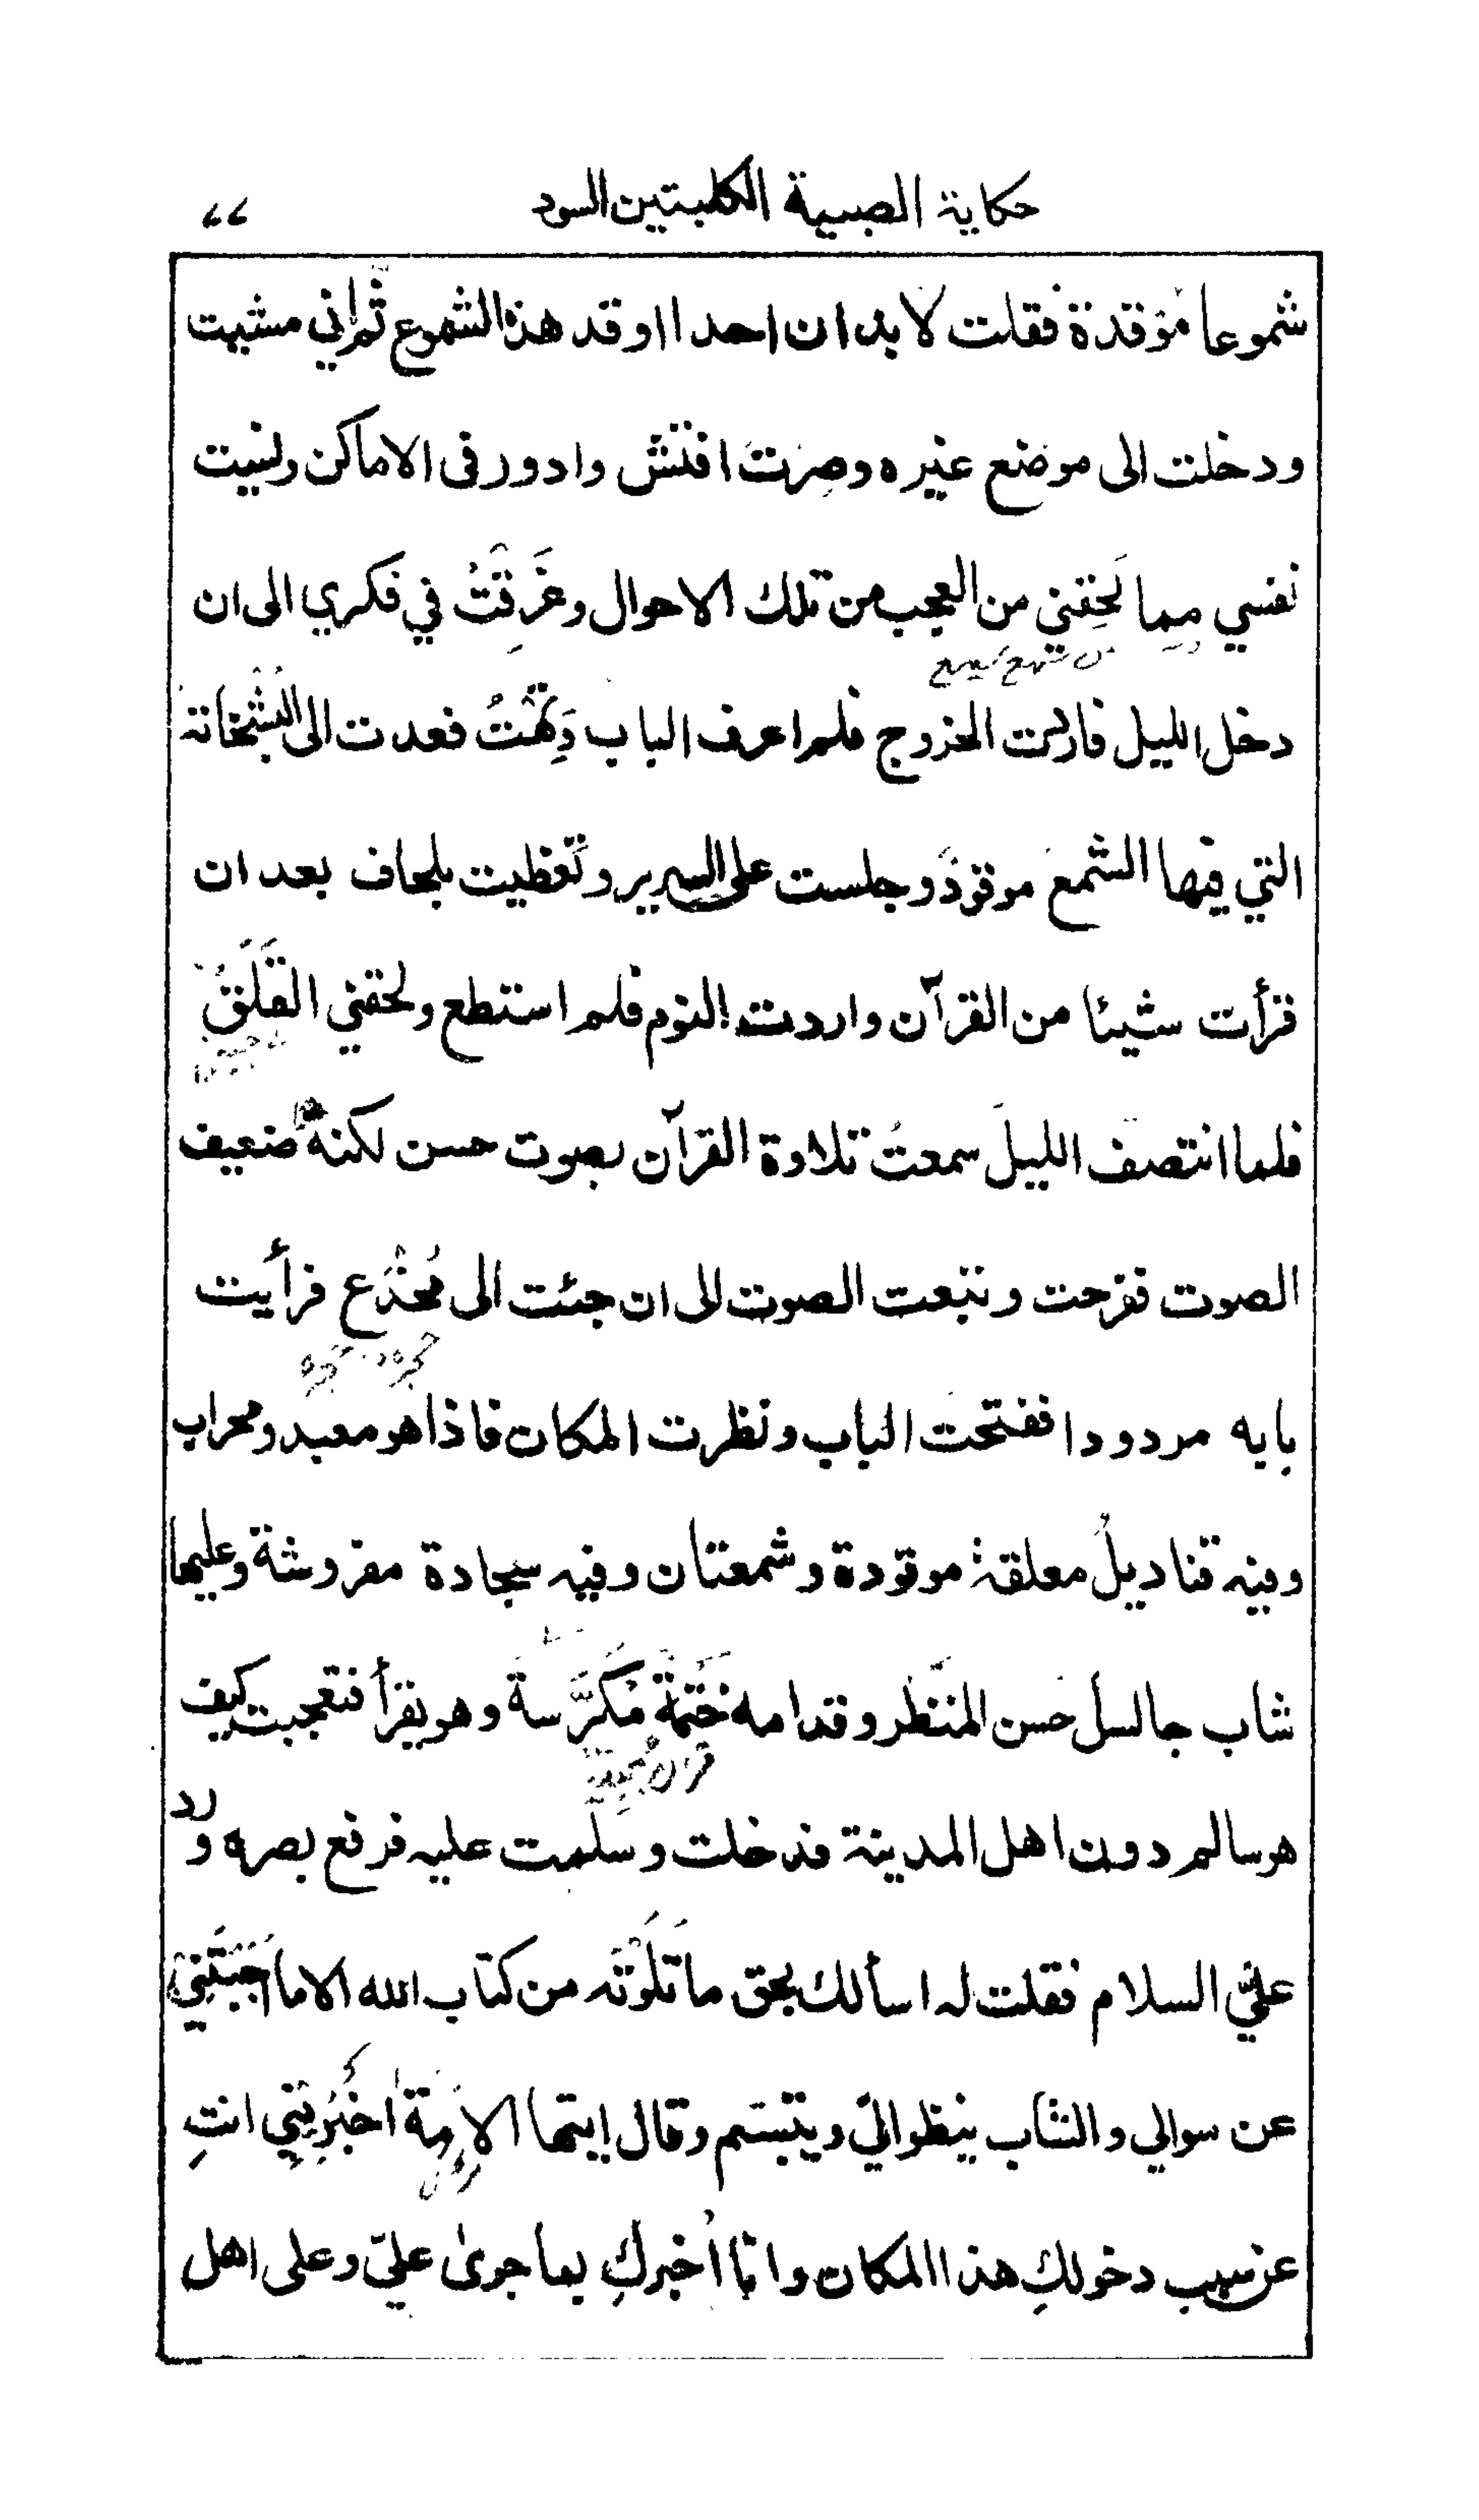 حكاية الصبية الكلبتين السود ٧٧
شموعا موقدة فقلت لا بد ان احدا اوقد هذا الشموع ثم اني مشيت
ودخلت الى موضع غيره وصرت افتش وادور فى الاماكن ونسيت
نفسي مما لَحِقني من العجب من تلك الاحوال وغَرِقْتُ في فكري الى ان
دخل الليل فاردت الخروج فلم اعرف الباب وَتُهْتُ فعدت الى البَشْخانة
التي فيها الشمع موقودَ وجلست على السرير وتغطيت بلحاف بعد ان
قرأت شيئا من القرآن واردت النوم فلم استطع ولحقني القَلَقُ
فلما انتصف الليل سمعتُ تلاوة القرآن بصوت حسن لكنهُ ضعيف
الصوت ففرحت وتبعت الصوت الى ان جئت الى مُخْدَع فرأيت
بابه مردودا ففتحت الباب ونظرت المكان فاذا هو معبد ومحراب
وفيه قناديلُ معلقةُ موقودة وشمعتان وفيه سجادة مفروشة وعليها
شاب جالس حَسن المَنْظَر وقدامه خَتْمَةٌ مُكَرَّسة وهو يقرأ فتعجبت كيف
هو سالم دون اهل المدينة فدخلت وسلمت عليه فرفع بصره ورد
عليّ السلام فقلت له اسألك بحق ما تَلَوْتَه من كتاب الله الا ما اَجَبْتَنِيْ
عن سوالي والشاب ينظر اليّ ويتبسّم وقال ايتها الاَمَة اَخْبِرِيْنِي انتِ
عن سبب دخولكِ هذا المكان وانا اُخبركِ بما جرىٰ عليّ وعلى اهل